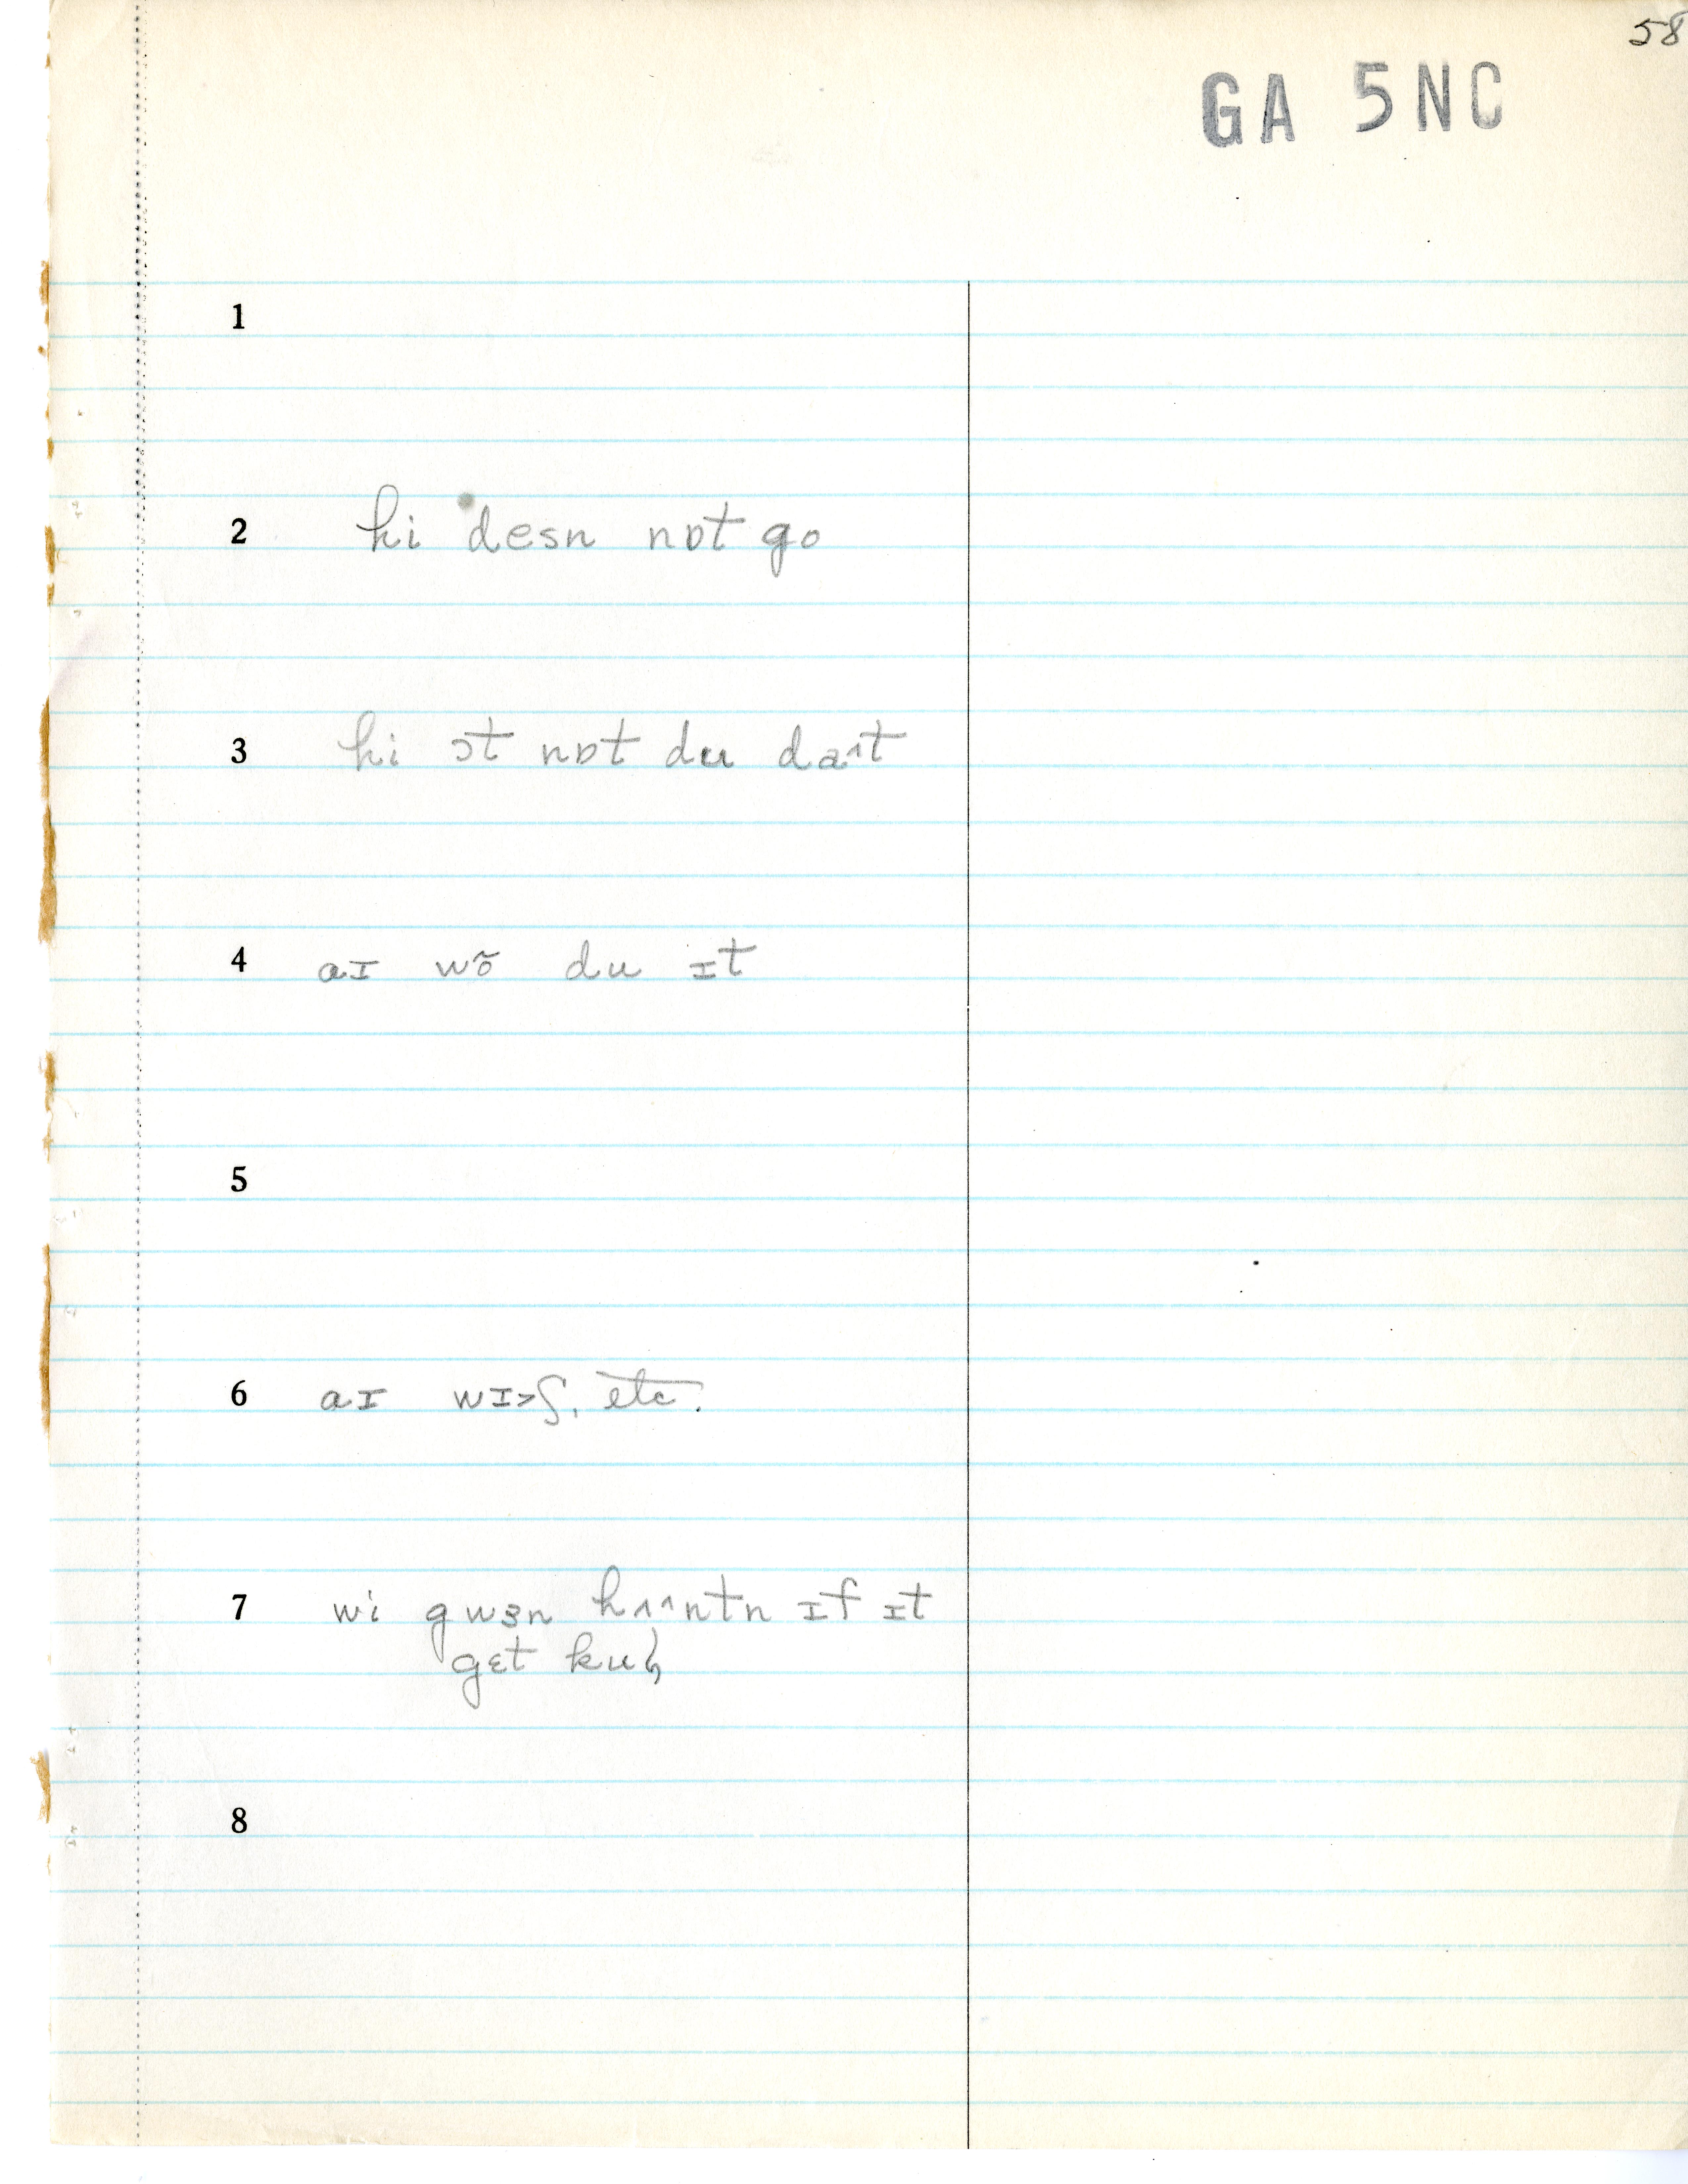 58
GA 5NC
1
2 hi desn nɒt go
3 hi ɔt nɒt du da^t
4 aɪ wõ du ɪt
5
6 aɪ wɪ>ʃ, etc.
7 wi gwɜn hʌ^ntn ɪf ɪt
gɛt
8